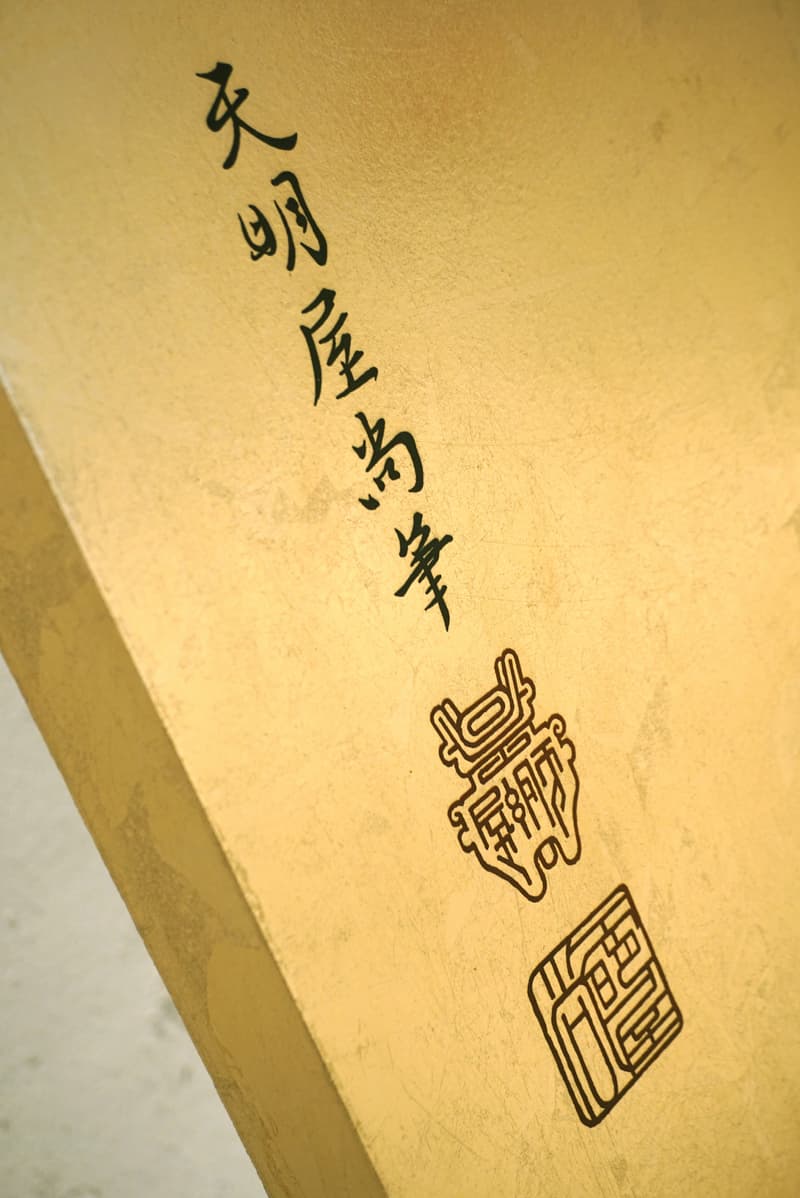 天明屋尚筆